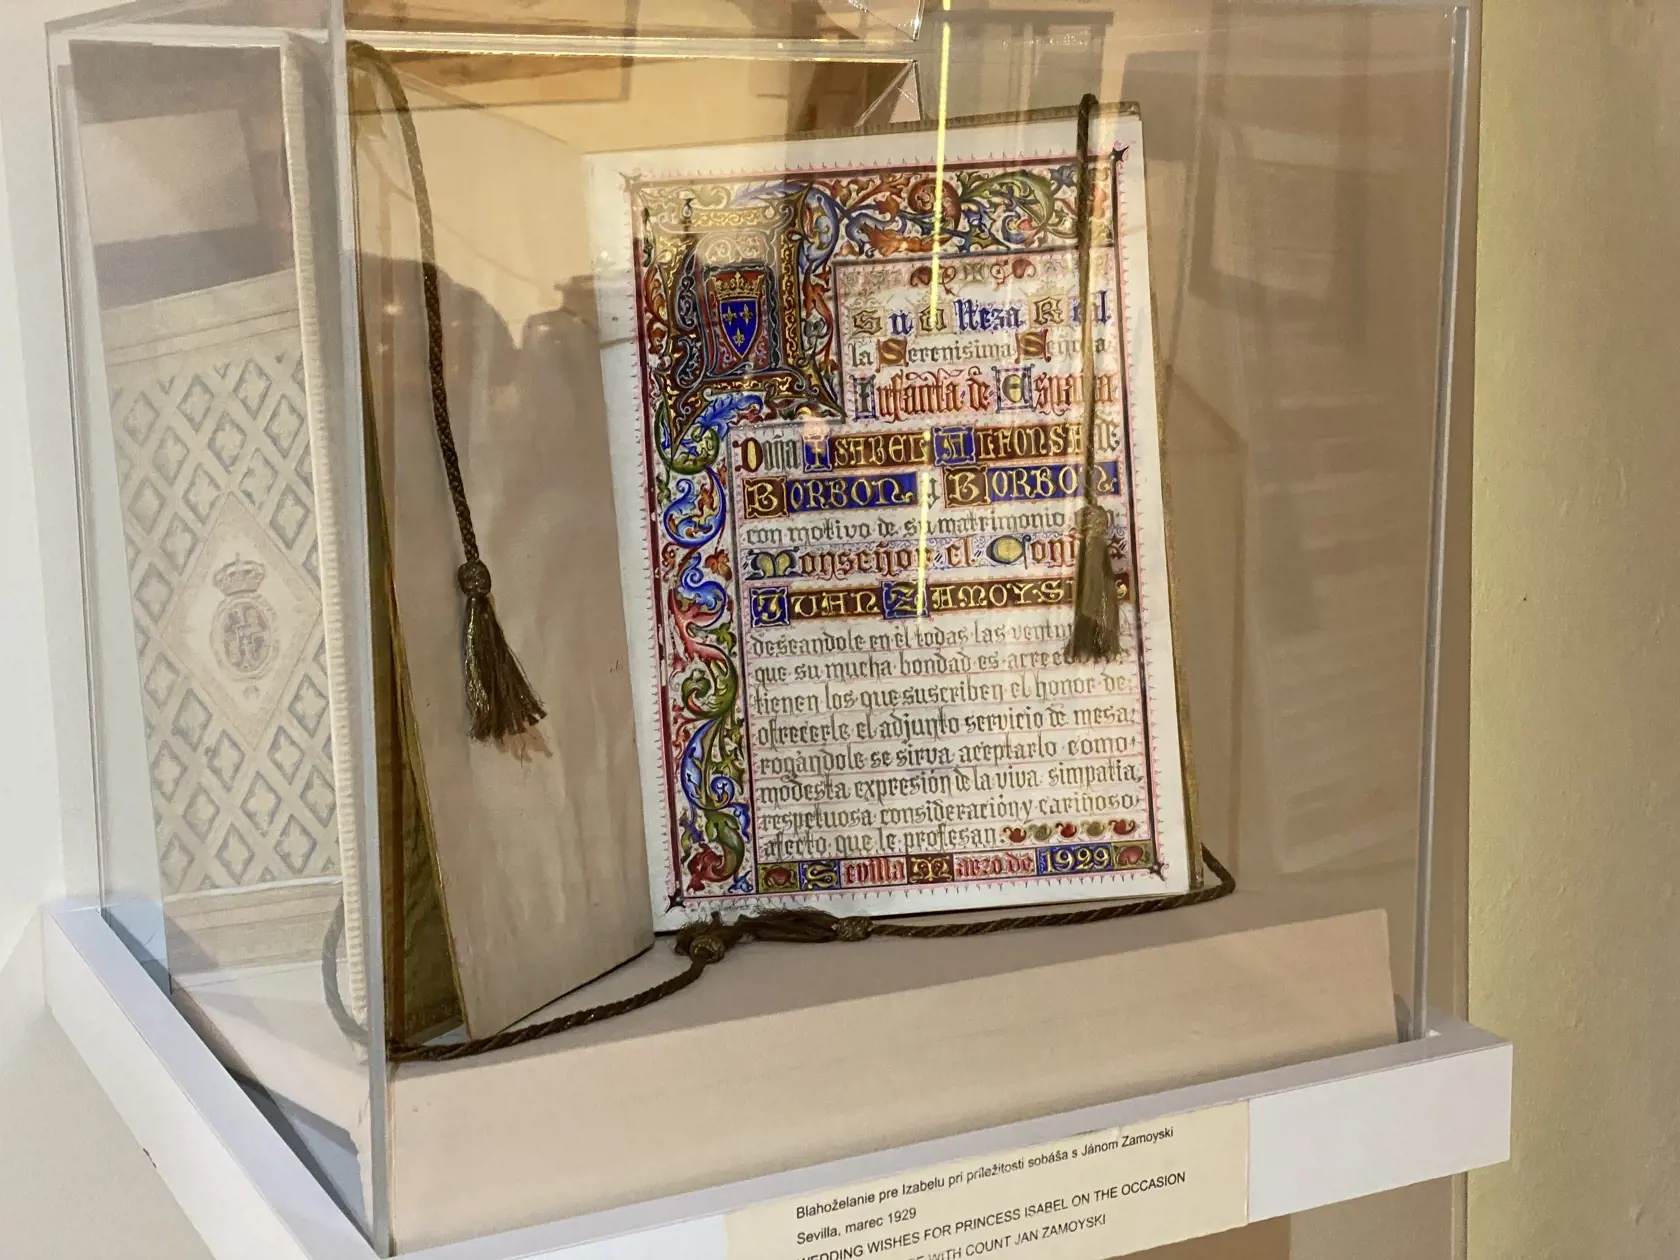 Su Alteza Real
la Serenisima Señora
Infanta de España
Doña ISABEL ALFONSA de
BORBON y BORBON
con motivo de su matrimonio con
Monseñor el Conde
JUAN ZAMOYSKI
deseandole en él todas las ventu
que su mucha bondad es acreedora
tienen los que suscriben el honor de
ofrecerle el adjunto servicio de mesa
rogándole se sirva aceptarlo como
modesta expresión de la viva simpatia,
respetuosa consideración y cariñoso
afecto que le profesan.
Sevilla Marzo de 1929
Blahoželanie pre Izabelu pri príležitosti sobáša s Jánom Zamoyski
Sevilla, marec 1929
WEDDING WISHES FOR PRINCESS ISABEL ON THE OCCASION
WITH COUNT JAN ZAMOYSKI